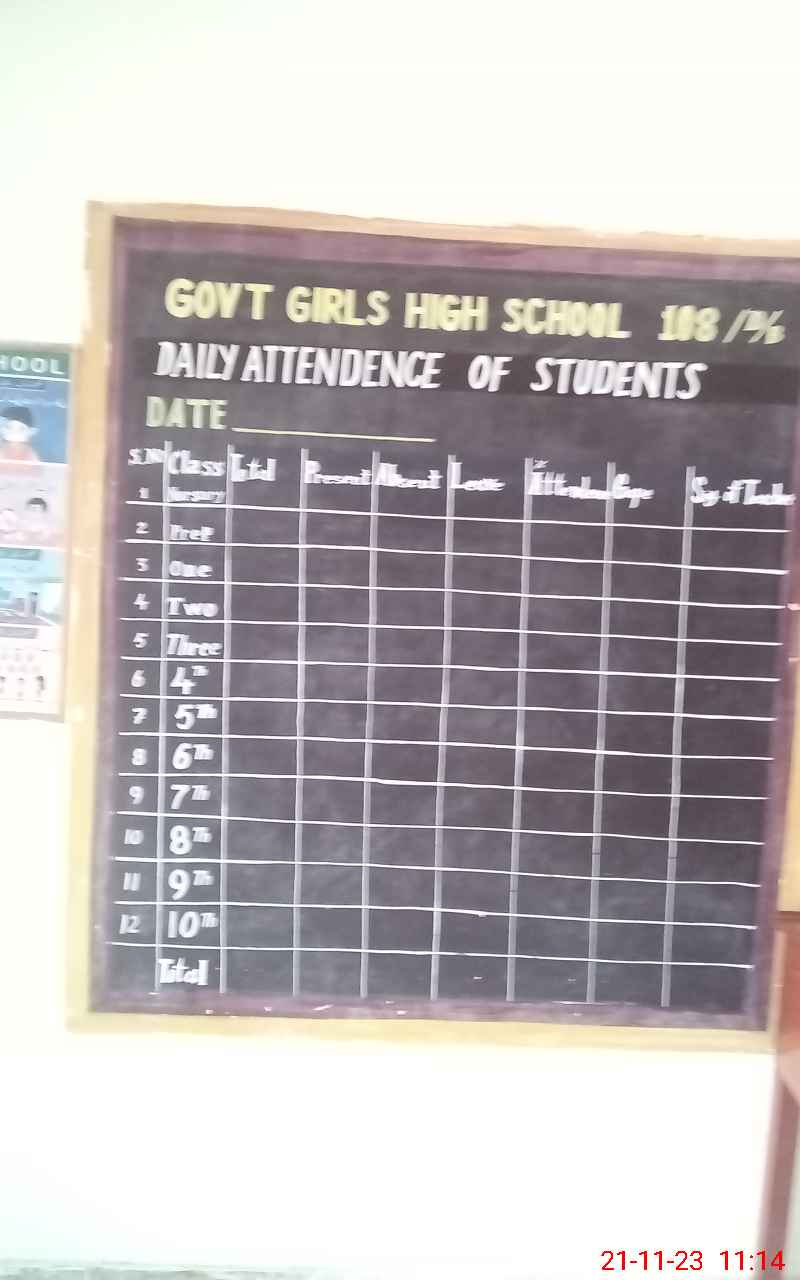 GOVT GIRLS HIGH SCHOOL 108/
HOOL
DAILY ATTENDENCE OF STUDENTS
DATE
S.No Class Total Present Absent Leave Sig of Teacher
1 Nursury
2 PreP
3 One
4 Two
5 Three
6 4Th
7 5Th
8 6Th
9 7Th
10 8Th
11 9Th
12 10Th
Total
21-11-23 11:14